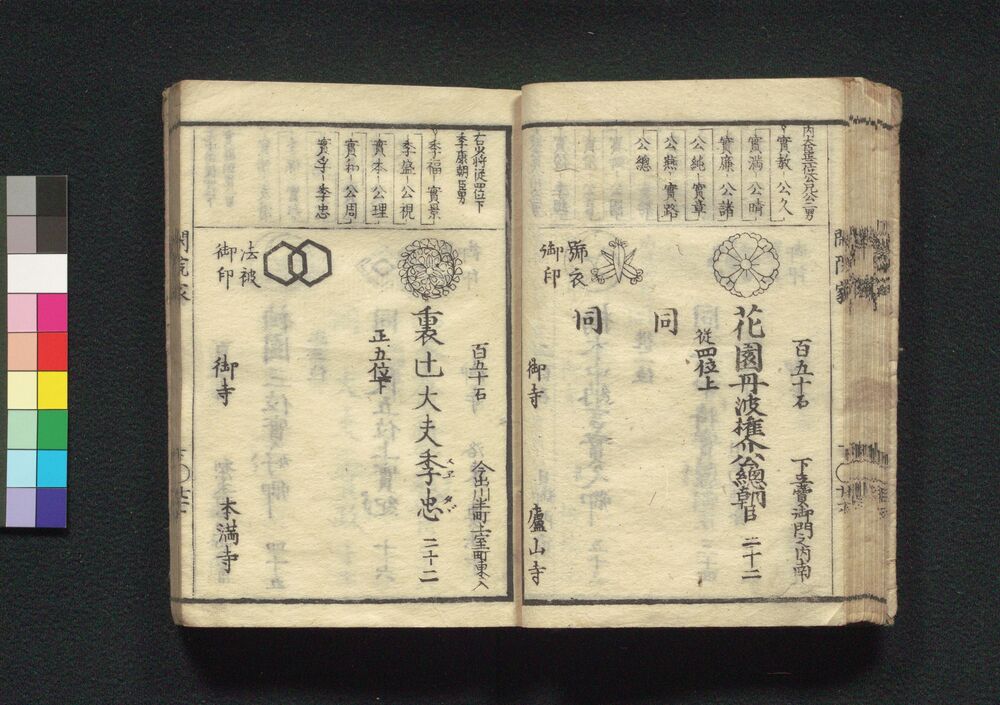 實教 公久
實満 公晴
實廉 公諸
公純 實章
公燕 實路
公總
百五十石
下立賣御門之内南
花園丹波権介公總朝臣 二十二
從四位上
同
同
御寺 盧山寺
御印
右少将従四位下
季康朝臣男
季福 實景
季盛 公視
實本 公理
實和 公周
實孚 季忠
百五十石
今出川上町上室町東入
裏辻大夫季忠 二十二
スヱタヾ
正五位下
法被
御印
御寺 本満寺
閑院家